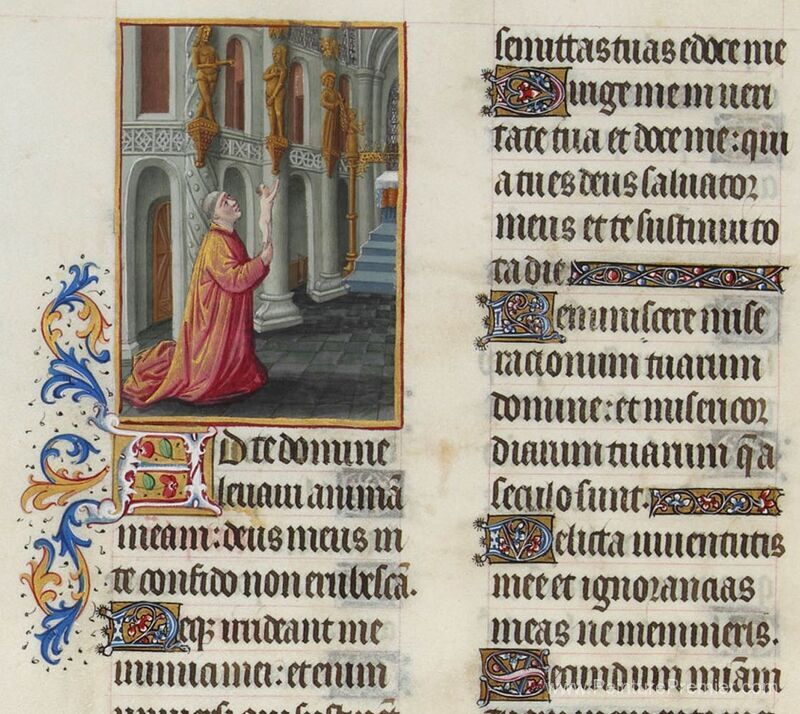 Ad te domine
leuaui animā
meam: deus meus in
te confido non erubescā.
Neqꝫ irrideant me
inimici mei: etenim
semittas tuas edoce me
Dirige me in ueri
tate tua et doce me: qui
a tu es deus saluator
meus et te sustinui to
ta die
Reminiscere mise
racionum tuarum
domine: et misericor
diarum tuarum q̄ a
seculo sunt.
Delicta iuuentutis
mee et ignorancias
meas ne memineris.
Secundum miām